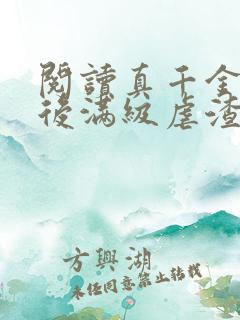 閱讀真千金
後滿級虐渣
方興湖
未經同意禁止轉載